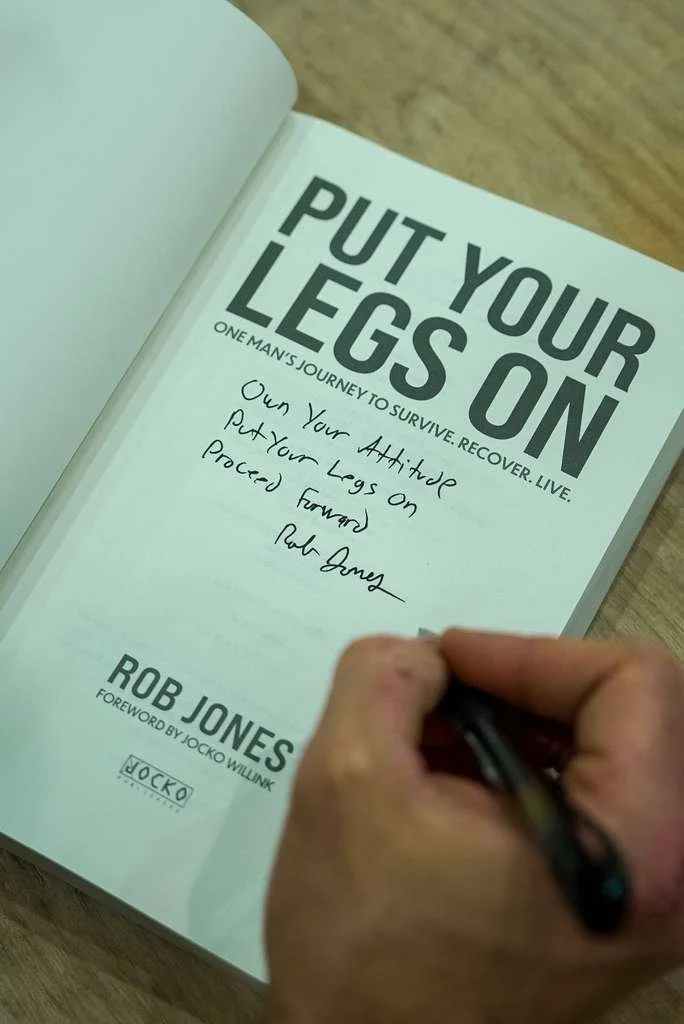 PUT YOUR
LEGS ON
ONE MAN'S JOURNEY TO SURVIVE. RECOVER. LIVE.
Own Your Attitude
Put Your Legs On
Proceed Forward
Rob Jones
ROB JONES
FOREWORD BY JOCKO WILLINK
JOCKO
PUBLISHING